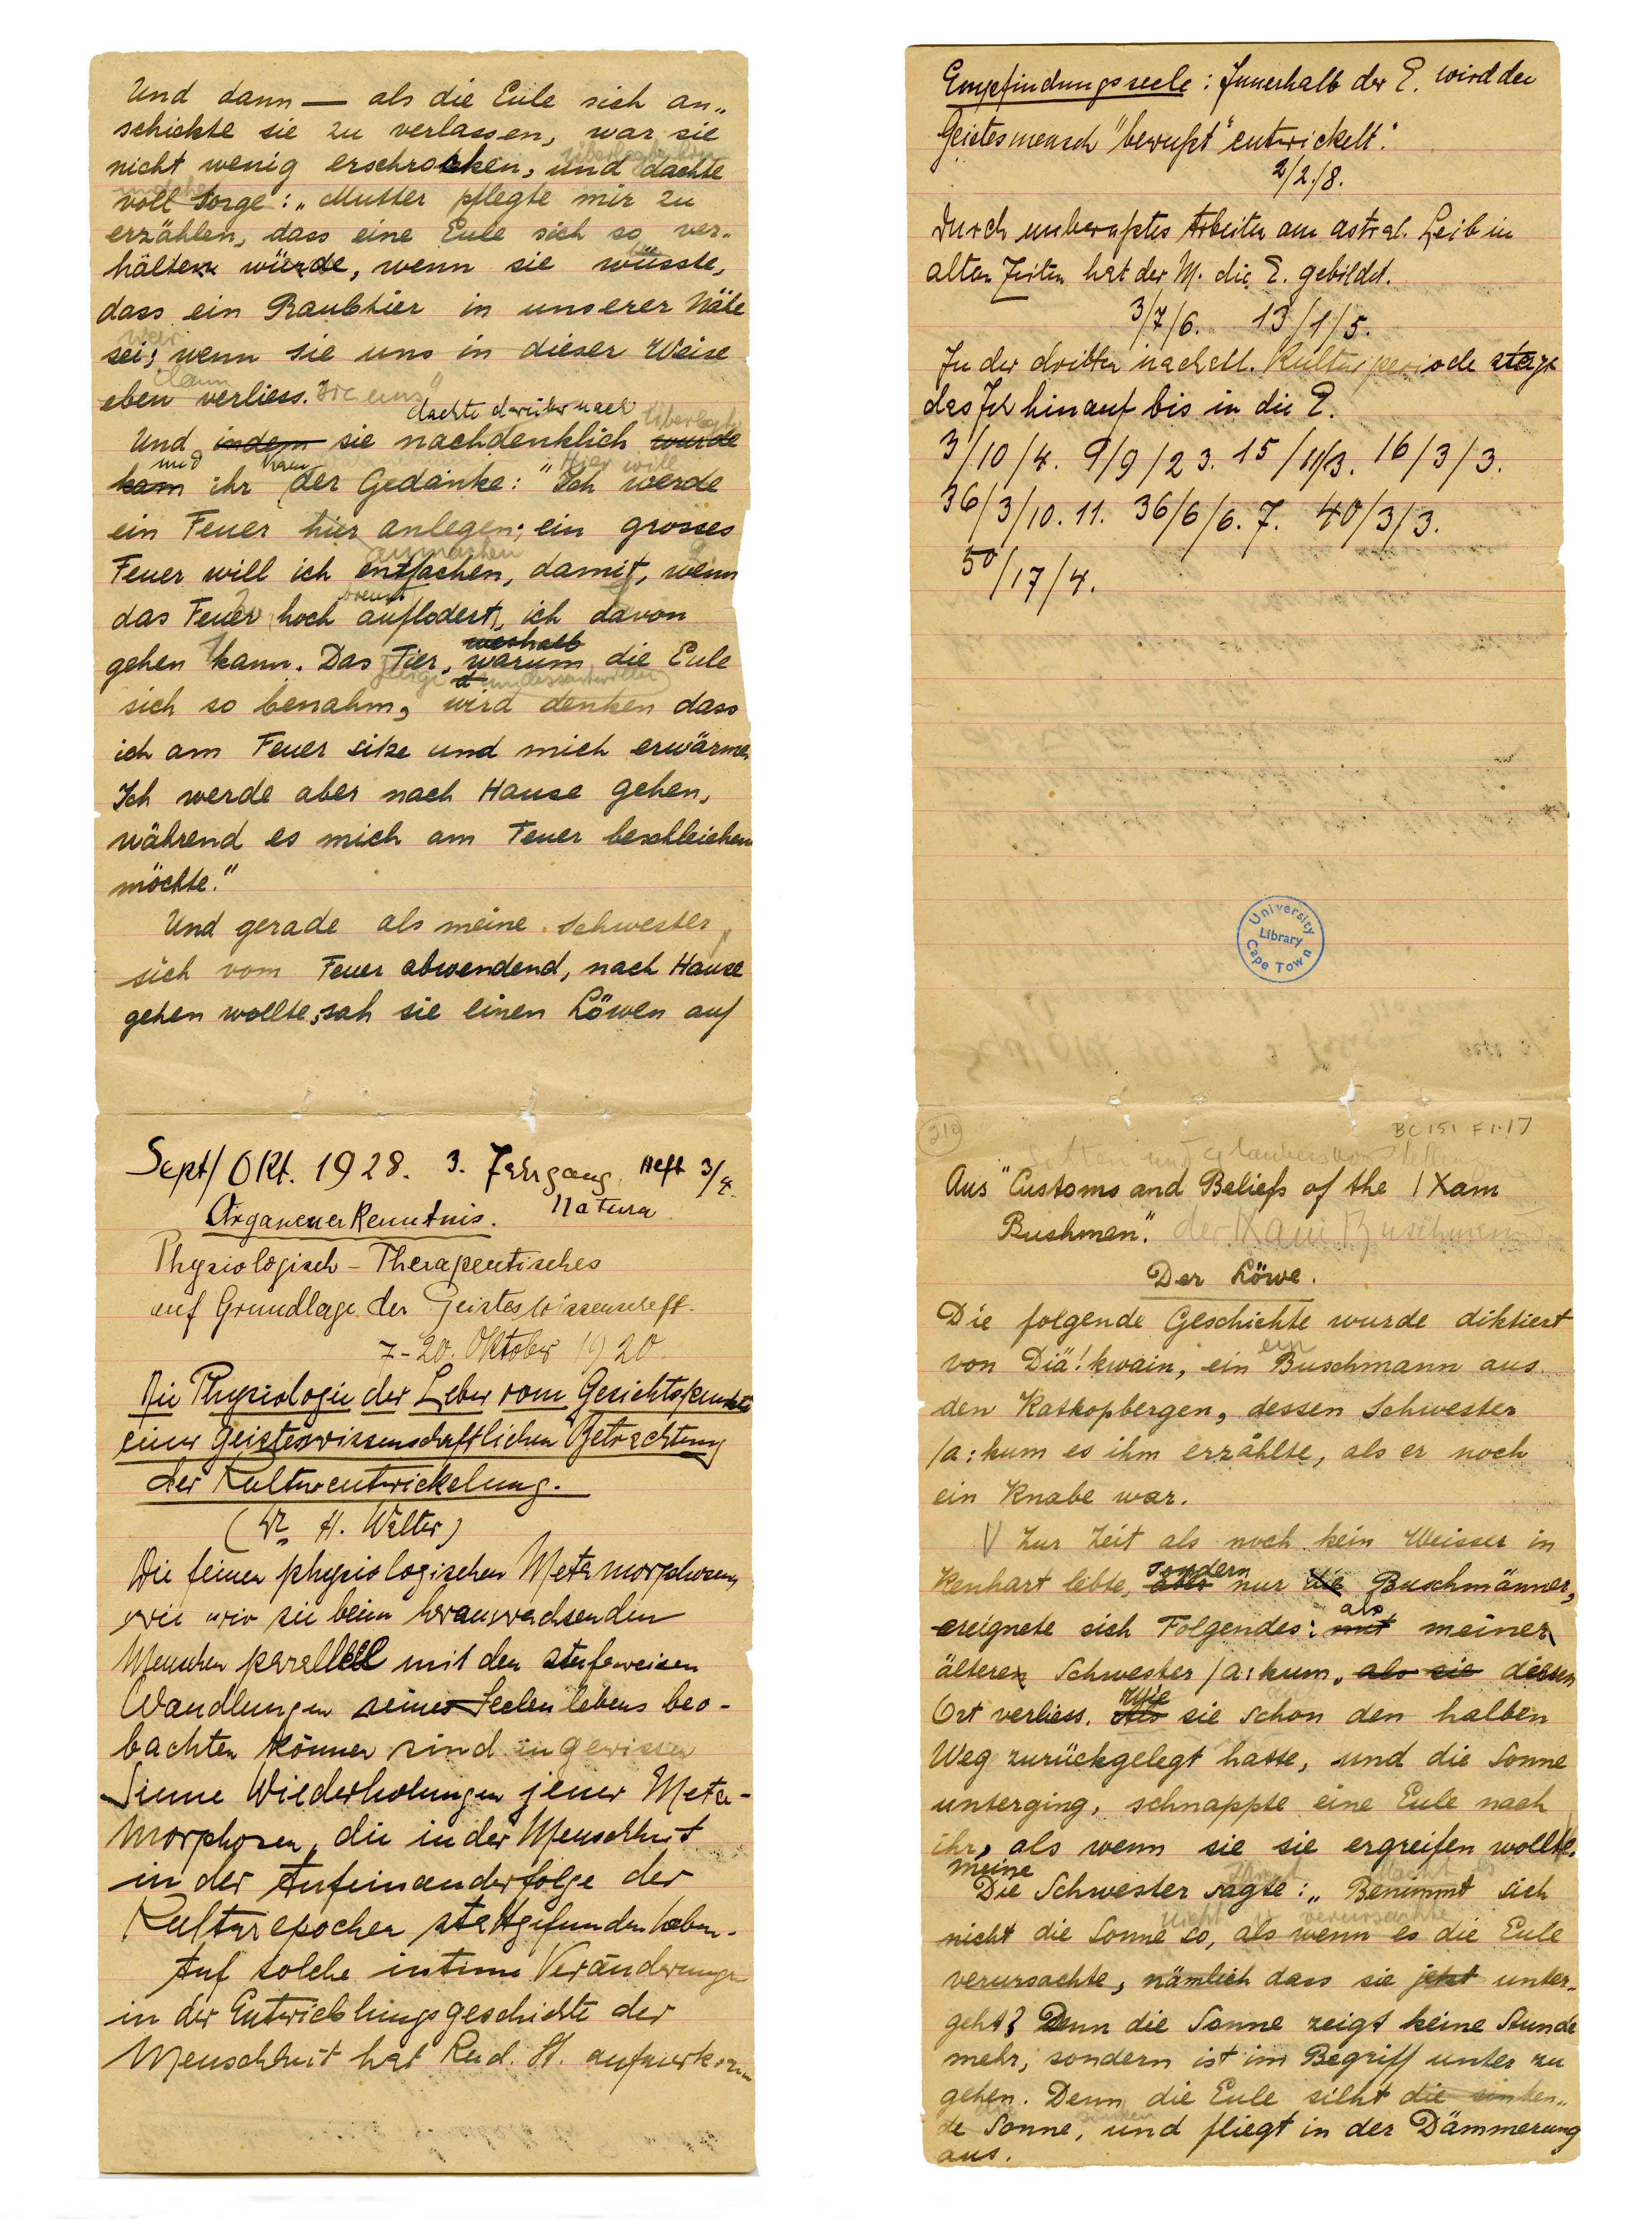 Und dann — als die Eule sich an„
schickte sie zu verlassen, war sie
nicht wenig erschrocken, und dachte
voll Sorge: „Mutter pflegte mir zu
erzählen, dass eine Eule sich so ver„
hälten würde, wenn sie wüsste,
dass ein Raubtier in unserer Nähe
sei; wenn sie uns in dieser Weise
dann
eben verliess. sie uns"
dachte darüber nach
Und indem sie nachdenklich wurde
und kam
kam ihr der Gedanke: "Ich werde
ein Feuer hier anlegen; ein grosses
anmachen
Feuer will ich entfachen, damit, wenn
brennt
das Feuer hoch auflodert, ich davon
weshalb
gehen kann. Das Tier, warum die Eule
sich so benahm, wird denken dass
ich am Feuer sitze und mich erwärme
Ich werde aber nach Hause gehen,
während es mich am Feuer beschleichen
möchte."
Und gerade als meine Schwester,
sich vom Feuer abwendend, nach Hause
gehen wollte, sah sie einen Löwen auf
Sept/Okt. 1928. 3. Jahrgang, Heft 3/4.
Natura
Physiologisch - Therapeutisches
auf Grundlage der Geisteswissenschaft.
7-20. Oktober 1920
Die Physiologie der Leber vom Gesichtspunkte
einer geisteswissenschaftlichen Betrachtung
der Kulturentwickelung.
(Dr H. Walter)
Die feinen physiologischen Metamorphosen,
wie wir sie beim heranwachsenden
Menschen parallel mit den stufenweisen
Wandlungen seines Seelenlebens beo-
bachten können sind in gewissem
Sinne Wiederholungen jener Meta-
morphosen, die in der Menschheit
in der Aufeinanderfolge der
Kulturepochen stattgefunden haben.
Auf solche intime Veränderungen
in der Entwicklungsgeschichte der
Menschheit hat Rud. St. aufmerksam
Empfindungsseele: Innerhalb der E. wird der
Geistesmensch "bewußt" entwickelt.
2/2./8.
Durch unbewußtes Arbeiten am astral. Leib in
alten Zeiten hat der M. die E. gebildet.
3/7/6. 13/1/5.
In der dritten nachatl. Kulturperiode stieg
das Ich hinauf bis in die E.
3/10/4. 9/9/23. 15/11/3. 16/3/3.
36/3/10. 11. 36/6/6. 7. 40/3/3.
50/17/4.
University Library Cape Town
210 BC 151 F1.17
Sitten und Glaubensvorstellungen
Aus "Customs and Beliefs of the |Xam
Bushmen." der |Xam Buschmänner
Der Löwe.
Die folgende Geschichte wurde diktiert
ein
von Diä!kwain, ein Buschmann aus
den Katkopbergen, dessen Schwester
/a:kum es ihm erzählte, als er noch
ein Knabe war.
Zur Zeit als noch kein Weisser in
sondern
Kenhart lebte, aber nur die Buschmänner,
als
ereignete sich Folgendes: mit meiner
älteren Schwester /a:kum, als sie diesen
wie
Ort verliess. Als sie schon den halben
Weg zurückgelegt hatte, und die Sonne
unterging, schnappte eine Eule nach
ihr, als wenn sie sie ergreifen wollte.
meine
Die Schwester sagte: „Benimmt sich
nicht verursachte
nicht die Sonne so, als wenn es die Eule
verursachte, nämlich dass sie jetzt unter„
geht? Denn die Sonne zeigt keine Stunde
mehr, sondern ist im Begriff unter zu
gehen. Denn die Eule sieht die sinken„
de Sonne, und fliegt in der Dämmerung
aus.